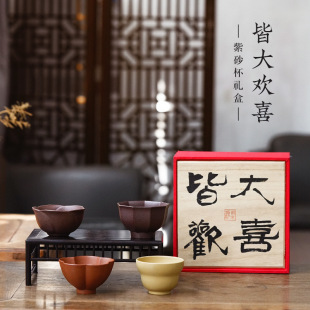 皆大欢喜
紫砂杯礼盒
皆大
歡喜